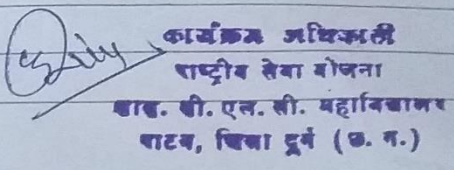 कार्यक्रम अधिकारी
राष्ट्रीय सेवा योजना
शास. सी. एल. सी. महाविद्यालय
पाटन, जिला दुर्ग (छ. ग.)